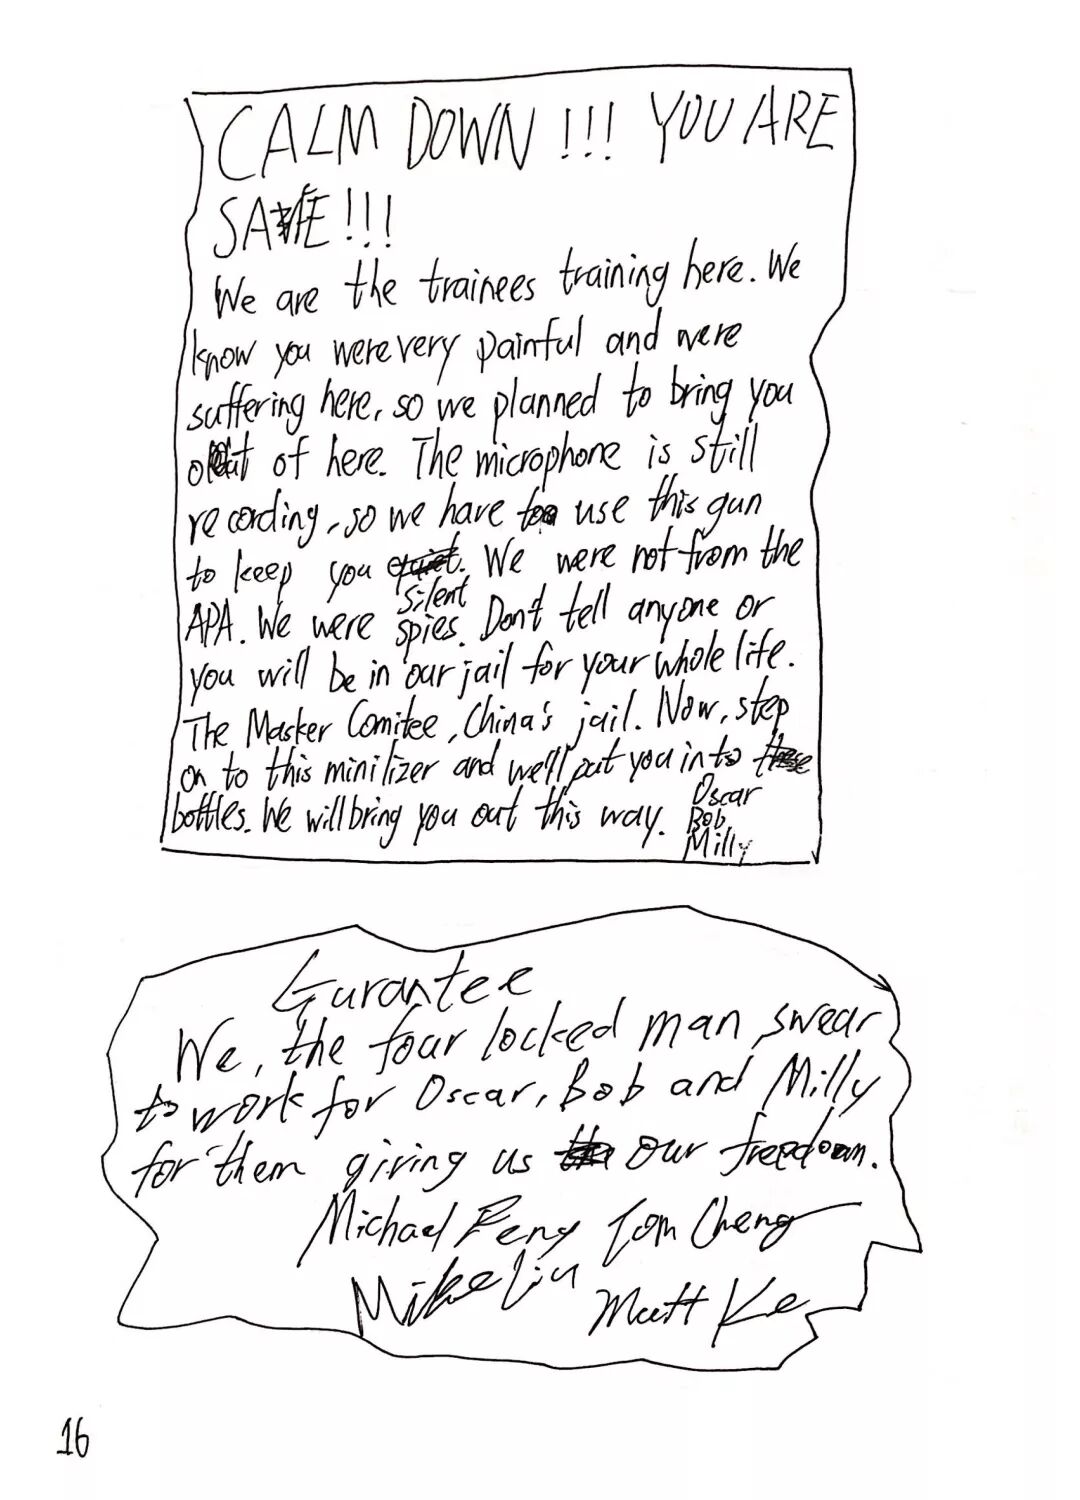 CALM DOWN !!! YOU ARE
SAFE!!!
We are the trainees training here. We
know you were very painful and were
suffering here, so we planned to bring you
out of here. The microphone is still
recording, so we have to use this gun
to keep you silent. We were not from the
APA. We were spies. Don't tell anyone or
you will be in our jail for your whole life.
The Masker Comitee, China's jail. Now, step
on to this minilizer and we'll put you into these
bottles. We will bring you out this way.
Oscar
Bob
Milly
Gurantee
We, the four locked man, swear
to work for Oscar, Bob and Milly
for them giving us our freedom.
Michael Feng Tom Cheng
Mike Liu Matt Ke
16